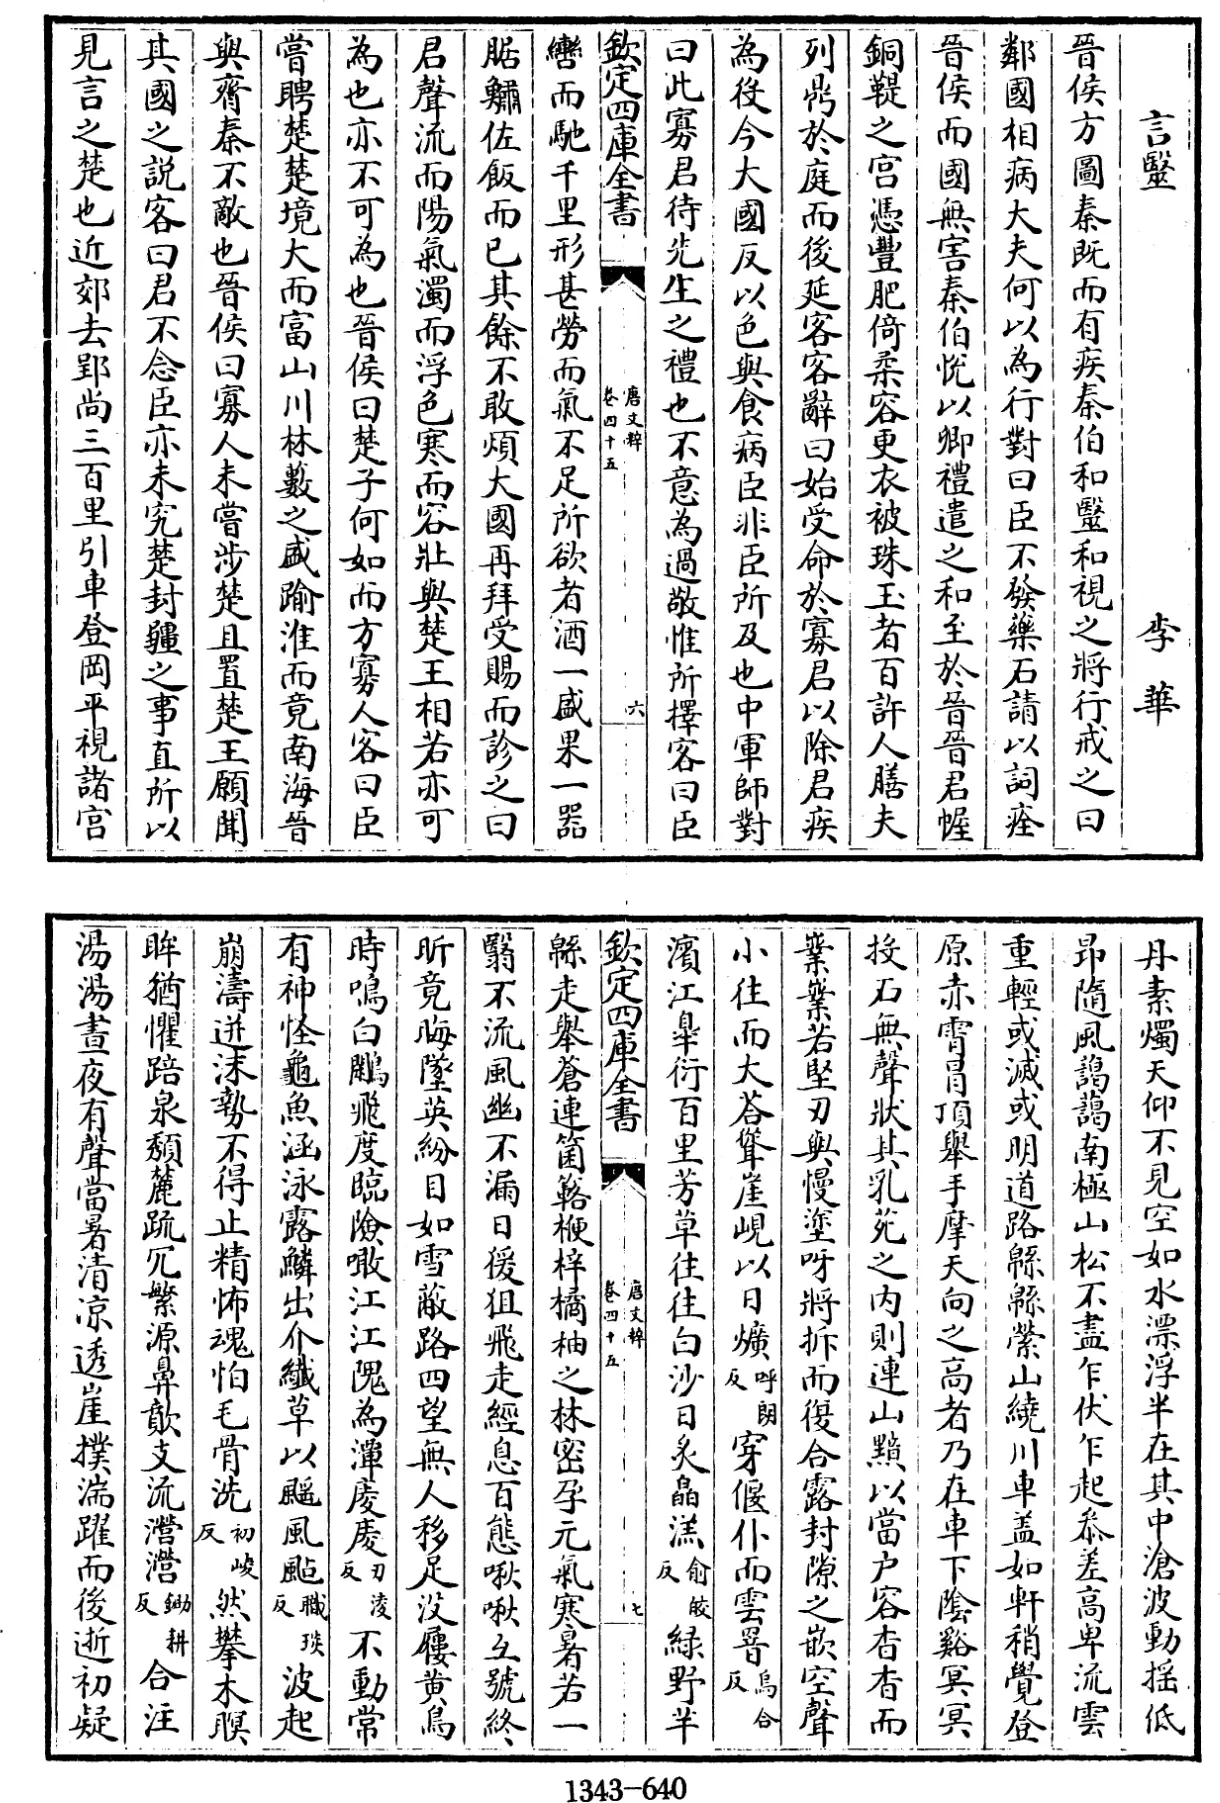 言毉 李華
晉侯方圖秦既而有疾秦伯和毉和視之將行戒之曰
鄰國相病大夫何以為行對曰臣不發藥石請以詞痊
晉侯而國無害秦伯悅以卿禮遣之和至於晉晉君幄
銅鞮之宮憑豐肥倚柔容更衣被珠玉者百許人膳夫
列鼎於庭而後延客客辭曰始受命於寡君以除君疾
為役今大國反以色與食病臣非臣所及也中軍師對
曰此寡君待先生之禮也不意為過敬惟所擇客曰臣
欽定四庫全書 唐文粹 卷四十五 六
轡而馳千里形甚勞而氣不足所欲者酒一盛果一器
腒鱐佐飯而已其餘不敢煩大國再拜受賜而診之曰
君聲流而陽氣濁而浮色寒而容壯與楚王相若亦可
為也亦不可為也晉侯曰楚子何如而方寡人客曰臣
嘗聘楚楚境大而富山川林藪之盛踰淮而竟南海晉
與齊秦不敵也晉侯曰寡人未嘗涉楚且置楚王願聞
其國之說客曰君不念臣亦未究楚封疆之事直所以
見言之楚也近郊去郢尚三百里引車登岡平視諸宮
丹素燭天仰不見空如水漂浮半在其中滄波動搖低
昂隨風藹藹南極山松不盡乍伏乍起叅差高卑流雲
重輕或滅或明道路緜緜縈山繞川車盖如軒稍覺登
原赤霄冒頂舉手摩天向之高者乃在車下陰谿冥冥
投石無聲狀其乳菀之内則連山黯以當户容杳杳而
業業若堅刃與慢塗呀將拆而復合露封隙之嵌空聲
小往而大荅聳崖峴以日爌呼朗反穿偃仆而雲罯烏合反
濱江臯衍百里芳草往往白沙日炙皛溔俞皎反綠野芊
欽定四庫全書 唐文粹 卷四十五 七
緜走舉蒼連箘簵楩梓橘柚之林密孕元氣寒暑若一
翳不流風幽不漏日猨狙飛走經息百態啾啾互號終
昕竟晦墜英紛目如雪蔽路四望無人移足没屨黄鳥
時鳴白鷴飛度臨險噉江江隈為渾庱庱丑凌反不動常
有神怪龜魚涵泳露鱗出介纎草以颾風颭職琰反波起
崩濤迸沫勢不得止精怖魂怕毛骨洗初峻反然攀木瞑
眸猶懼踣泉頽麓疏冗繁源鼻歕支流濳濳鋤耕反合注
湯湯晝夜有聲當暑清凉透崖撲湍躍而後逝初疑
1343-640